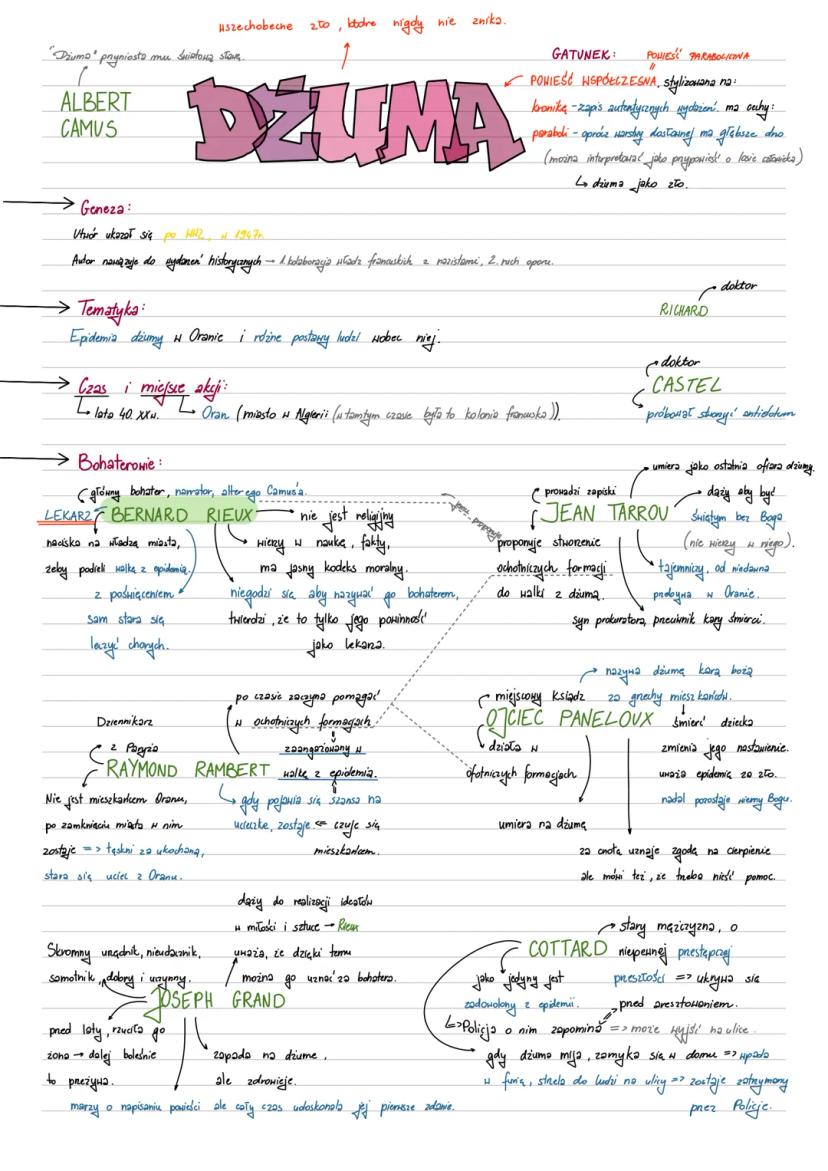 wszechobecne zło, które nigdy nie znika.
"Dżuma" przyniosła mu światową sławę.
ALBERT
CAMUS
DŻUMA
GATUNEK: POWIEŚĆ PARABOLICZNA
=
POWIEŚĆ WSPÓŁCZESNA, stylizowana na:
kronikę - zapis autentycznych wydarzeń. ma cechy:
paraboli - oprócz warstwy dosłownej ma głębsze dno
(można interpretować jako przypowieść o losie człowieka)
↳ dżuma jako zło.
Geneza:
Utwór ukazał się po WW2, w 1947r.
Autor nawiązuje do wydarzeń historycznych → 1. kolaboracja władz francuskich z nazistami, 2. ruch oporu.
Tematyka:
Epidemia dżumy w Oranie i różne postawy ludzi wobec niej.
doktor
RICHARD
Czas i miejsce akcji:
lata 40. XXw. Oran (miasto w Algierii (w tamtym czasie była to kolonia francuska)).
doktor
CASTEL
próbował stworzyć antidotum
Bohaterowie:
główny bohater, narrator, alter ego Camus'a.
LEKARZ BERNARD RIEUX
nie jest religijny
naciska na władzę miasta,
żeby podjęli walkę z epidemią.
z poświęceniem
sam stara się
leczyć chorych.
wierzy w naukę, fakty,
ma jasny kodeks moralny.
niegodzi się aby nazywać go bohaterem,
twierdzi, że to tylko jego powinność
jako lekarza.
umiera jako ostatnia ofiara dżumy.
prowadzi zapiski
JEAN TARROU
dąży aby być
świętym bez Boga
(nie wierzy w niego).
proponuje stworzenie
ochotniczych formacji
do walki z dżumą.
tajemniczy, od niedawna
przebywa w Oranie.
syn prokuratora, przeciwnik kary śmierci.
po czasie zaczyna pomagać
w ochotniczych formacjach
zaangażowany w
walkę z epidemią.
Dziennikarz
z Paryża
RAYMOND RAMBERT
Nie jest mieszkańcem Oranu,
po zamknięciu miasta w nim
zostaje => tęskni za ukochaną,
stara się uciec z Oranu.
gdy pojawia się szansa na
ucieczkę, zostaje <= czuje się
mieszkańcem.
nazywa dżumę karą bożą
za grzechy mieszkańców.
miejscowy ksiądz
OJCIEC PANELOUX
działa w
ofotniczych formacjach
śmierć dziecka
zmienia jego nastawienie.
uważa epidemię za zło.
nadal pozostaje wierny Bogu.
umiera na dżumę
za cnotę uznaje zgodę na cierpienie
ale mówi też, że trzeba nieść pomoc.
dąży do realizacji ideałów
w miłości i sztuce → Rieux
uważa, że dzięki temu
można go uznać za bohatera.
Skromny urzędnik, nieudacznik,
samotnik, dobry i uczynny.
JOSEPH GRAND
przed laty, rzuciła go
żona → dalej boleśnie
to przeżywa.
zapada na dżumę,
ale zdrowieje.
marzy o napisaniu powieści ale cały czas udoskonala jej pierwsze zdanie.
stary mężczyzna, o
COTTARD niepewnej przestępczej
przeszłości => ukrywa się
przed aresztowaniem.
jako jedyny jest
zadowolony z epidemii.
↳ Policja o nim zapomina => może wyjść na ulice.
gdy dżuma mija, zamyka się w domu => wpada
w furię, strzela do ludzi na ulicy => zostaje zatrzymany
przez Policję.